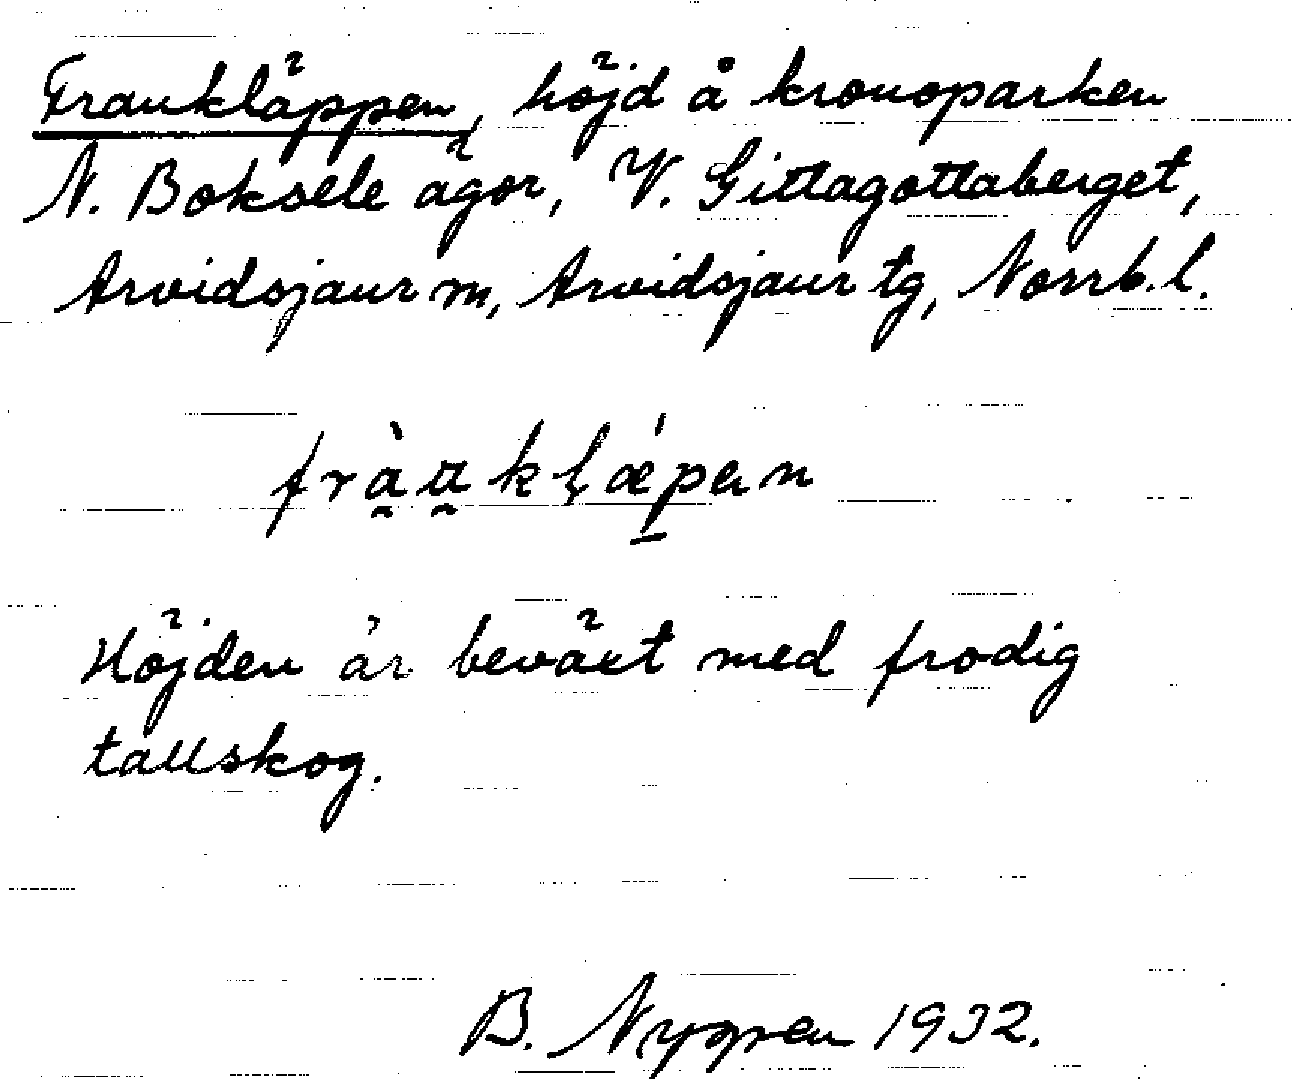 Frankläppen, höjd å kronoparken
N. Boksele ägor, V. Gittagottaberget,
Arvidsjaur m, Arvidsjaur tg, Norrb. l.
Höjden är beväxt med frodig
tallskog.
B. Nygren 1932.